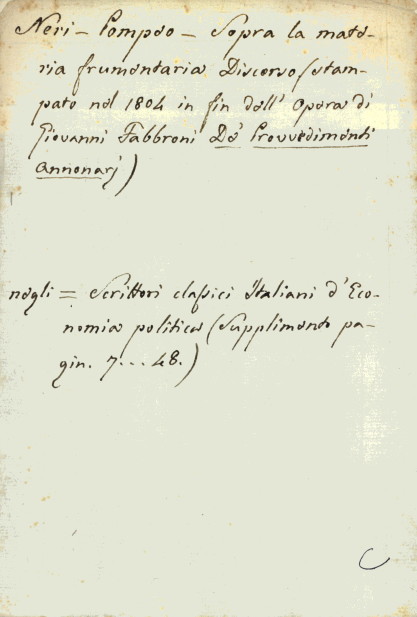 Neri - Pompeo - Sopra la mate-
ria frumentaria Discorso (stam-
pato nel 1804 in fin dell' Opera di
Giovanni Fabbroni De' Provvedimenti
Annonarj)
negli = Scrittori classici Italiani d'Eco-
nomia politica (Supplimento pa-
gin. 7... 48.)
C